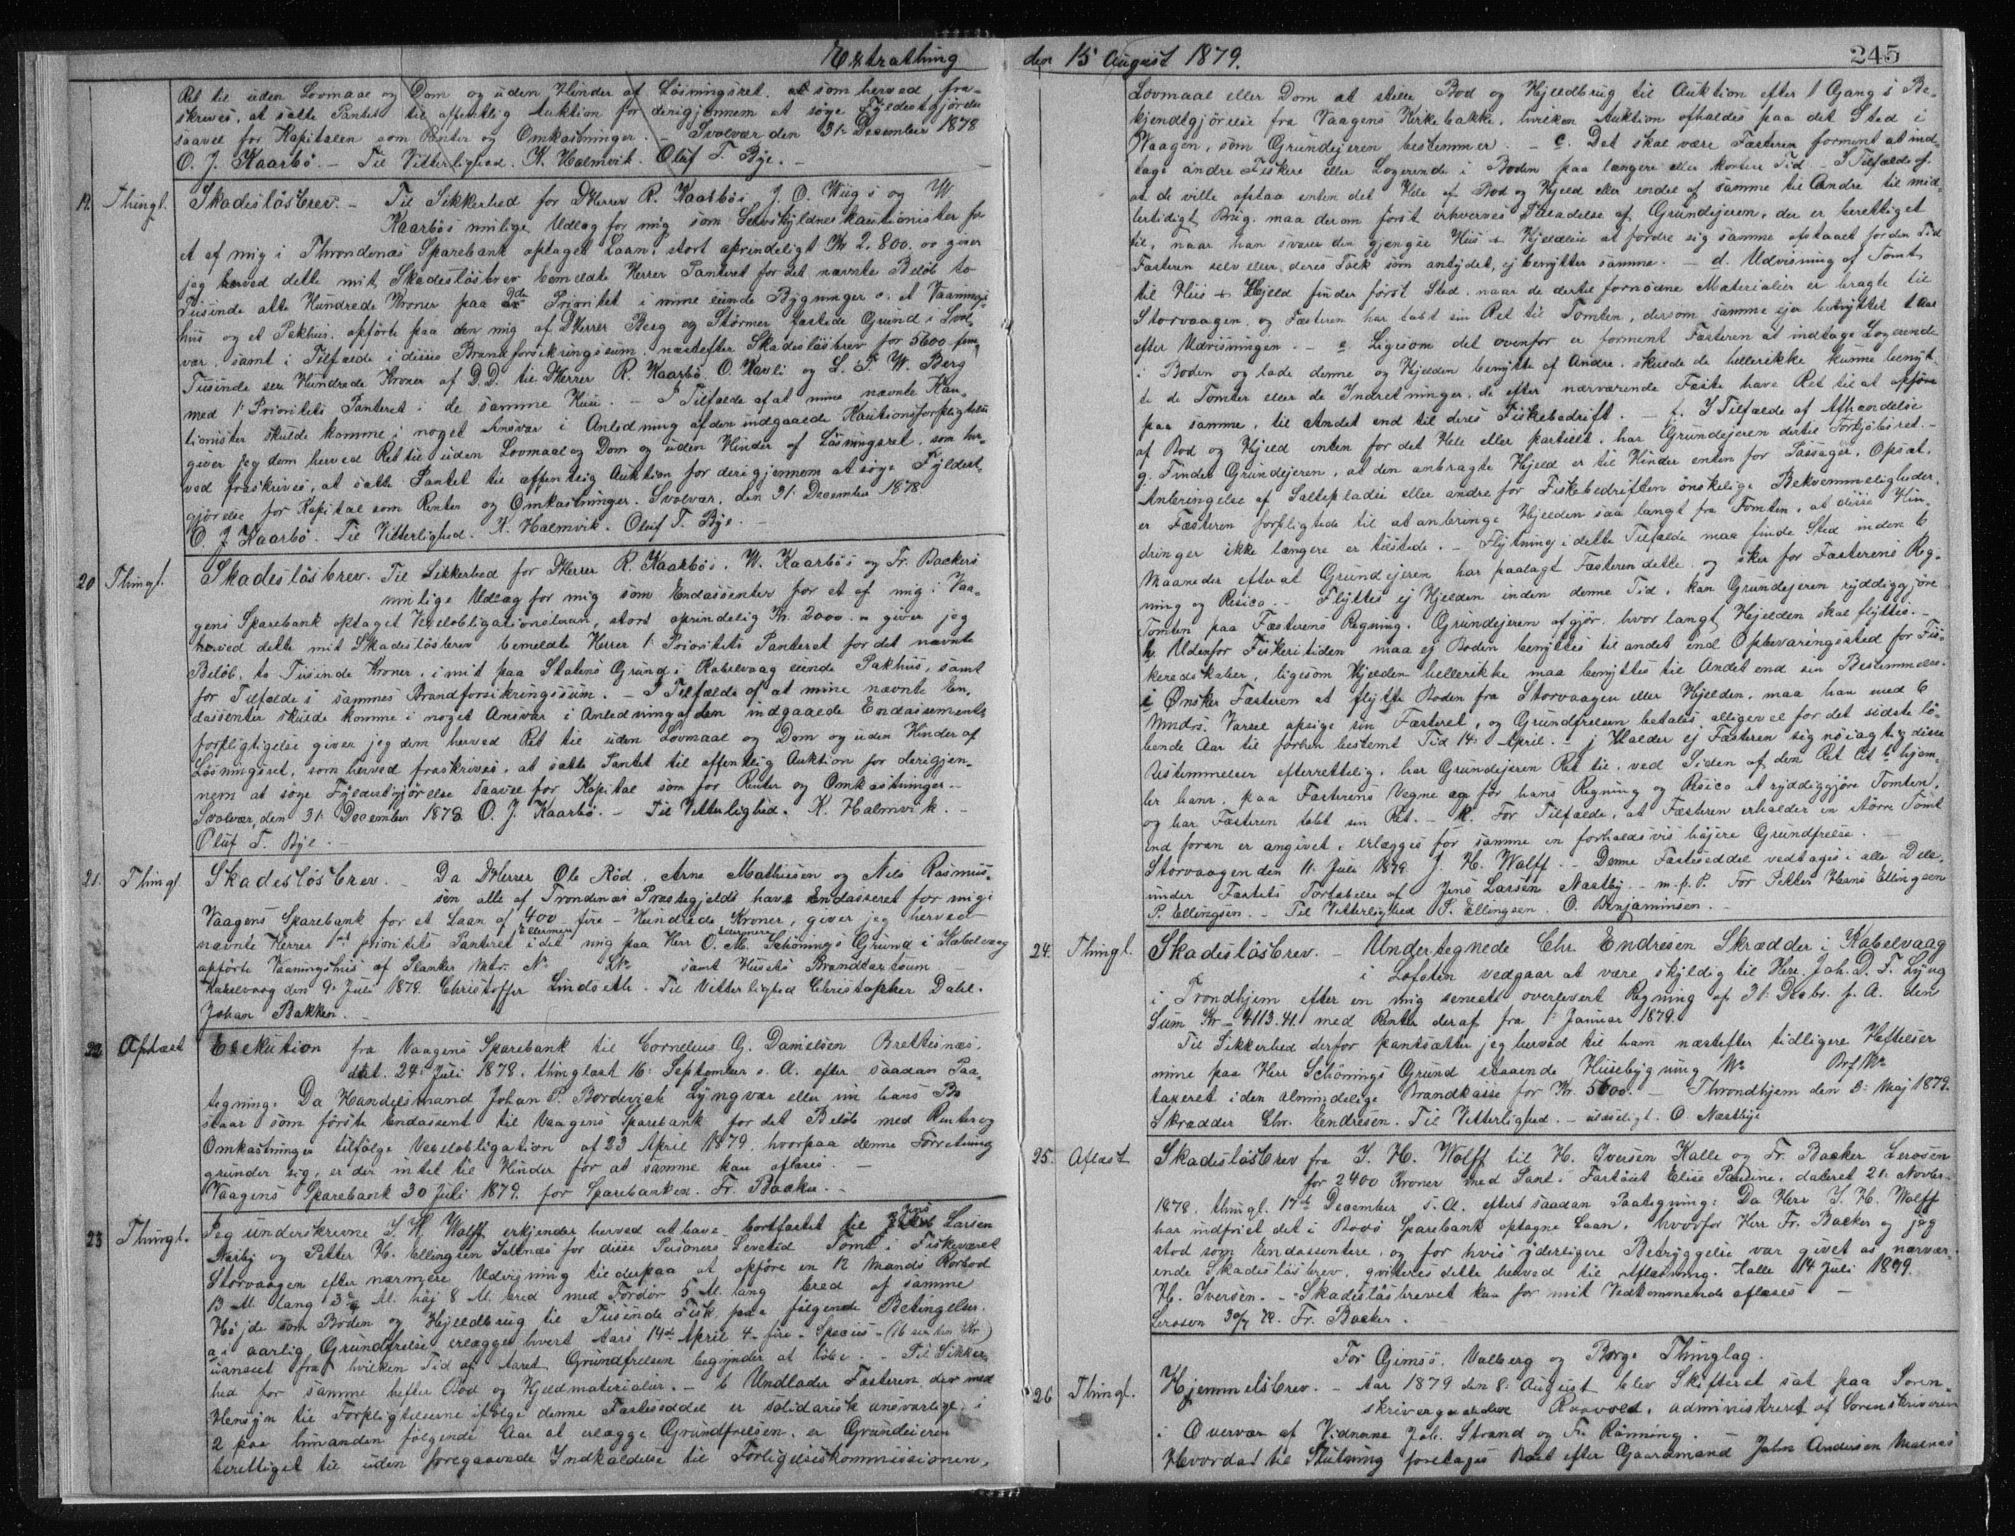 Extrathing
Ret til uden Lovmaal og Dom og uden Hinder af Løsningsret, som herved fra-
skrives, at sætte Pantet til offentlig Auktion for derigjennem at søge Fyldestgjørelse
saavel for Kapitalen som Renter og Omkostninger. – Svolvær den 31: December 1878
O. J. Kaarbø. – Til Vitterlighed. K. Halmvik. Oluf T. Bye. –
19. Thingl. Skadesløsbrev. – Til Sikkerhed for DHerrer R. Kaarbøs, J. O. Wiigs og W.
Kaarbøs mulige Udlæg for mig som Selvskyldnerkautionister for
et af mig i Throndenæs Sparebank optaget Laan, stort oprindeligt Kr 2.800.00 giver
jeg herved dette mit Skadesløsbrev bemeldte Herrer Panteret for det nævnte Beløb to
Tusinde otte Hundrede Kroner paa 2den Prioritet i mine eiende Bygninger o: et Vaanings-
hus og et Pakhus, opførte paa den mig af DHerrer Berg og Størmer fæstede Grund i Svol-
vær, samt i Tilfælde i disses Brandforsikringssum, næstefter Skadesløsbrev for 5600 fem
Tusinde sex Hundrede Kroner af D.D. til DHerrer R. Kaarbø, O. Kavli og L. T. W. Berg
med 1: Prioritets Panteret i de samme Huse. – I Tilfælde af at mine nævnte Kau-
tionister skulde komme i noget Ansvar i Anledning af den indgaaede Kautionsforpligtelse
giver jeg dem herved Ret til uden Lovmaal og Dom og uden Hinder af Løsningsret, som her-
ved fraskrives, at sætte Pantet til offentlig Auktion for derigjennem at søge Fyldest-
gjørelse for Kapital som Renter og Omkostninger. Svolvær, den 31: December 1878
O. J. Kaarbø. Til Vitterlighed. K. Halmvik. Oluf T. Bye. –
20 Thingl. Skadesløsbrev. Til Sikkerhed for DHerrer R. Kaarbøs, W. Kaarbøs og Fr. Backers
mulige Udlæg for mig som Endossenter for et af mig i Vaa-
gens Sparebank optaget Vexelobligationslaan, stort oprindelig Kr. 2000. giver jeg
herved dette mit Skadesløsbrev bemeldte Herrer 1: Prioritets Panteret for det nævnte
Beløb, to Tusinde Kroner, i mit paa Statens Grund i Kabelvaag eiende Pakhus, samt
for Tilfælde i sammes Brandforsikringssum. – I Tilfælde af at mine nævnte En-
dossenter skulde komme i noget Ansvar i Anledning af den indgaaede Endossements-
forpligtigelse giver jeg dem herved Ret til uden Lovmaal og Dom og uden Hinder af
Løsningsret, som herved fraskrives, at sætte Pantet til offentlig Auktion for derigjen-
nem at søge Fyldestgjørelse saavel for Kapital som for Renter og Omkostninger. –
Svolvær, den 31: December 1878 O. J. Kaarbø. – Til Vitterlighed. K. Halmvik. –
Oluf T. Bye. –
21. Thingl. Skadesløsbrev. – Da DHerrer Ole Rød, Arne Mathiesen og Nils Rasmus-
sen alle af Trondenæs Præstegjeld have Endosseret for mig i
Vaagens Sparebank for et Laan af 400 – fire – Hundrede Kroner, giver jeg herved
nævnte Herrer 1ste prioritets Panteret i det mig paa Herr O. M. Schønings Grund i Kabelvaag
opførte Vaaningshus af Planker Mtr. No LNo samt Husets Brandtaxtsum. –
Kabelvaag den 9: Juli 1879. Christoffer Lindseth. – Til Vitterlighed Christopher Dahl.
Johan Bakken. –
22 Aflæst Exekution fra Vaagens Sparebank til Cornelius G. Danielsen Brettesnæs,
dat. 24: Juli 1878, thinglæst 16: September s. A. efter saadan Paa-
tegning: Da Handelsmand Johan P. Borderick Lyngvær eller nu hans Bo
staar som første Endossent til Vaagens Sparebank for det Beløb med Renter og
Omkostninger tilfølge Vexelobligation af 23 April 1879, hvorpaa denne Forretning
grunder sig, er der intet til Hinder for at samme kan aflæses. –
Vaagens Sparebank 30 Juli 1879. for Sparebanken. Fr. Backer. –
23 Thingl. Jeg underskrevne J. H. Wolff erkjender herved at have bortfæstet til Jens Larsen
Næstby og Petter H. Ellingsen Saltnæs for disse Personers Levetid Tomt i Fiskeværet
Storvaagen efter nærmere Udvisning til derpaa at opføre en 12 Mands Rorbod
13 Al. lang 3¾ Al. høj 8 Al. bred med Fordør 5 Al. lang bred af samme
Højde som Boden og Hjeldbrug til Tusinde Fisk paa følgende Betingelser.
a: aarlig Grundfrelse erlægges hvert Aars 14de April 4 – fire – Species – (16 sexten Kr.)
uanseet fra hvilken Tid af Aaret Grundfrelsen begynder at løbe. – Til Sikker-
hed for samme hefter Bod og Hjeldmaterialier. – b Undlader Fæsteren der med
Hensyn til Forpligtelserne ifølge denne Fæsteseddel er solidarisk ansvarlige i
2 paa hinanden følgende Aar at erlægge Grundfrelsen, er Grundeieren
berettiget til uden foregaaende Indkaldelse til Forligelseskommissionen,
den 15 August 1879. 245
Lovmaal eller Dom at stille Bod og Hjeldbrug til Auktion efter 1 Gangs Be-
kjendtgjørelse fra Vaagens Kirkebakke, hvilken Auktion afholdes paa det Sted i
Vaagen, som Grundejeren bestemmer. – c. Det skal være Fæsteren forment at ind-
tage andre Fiskere eller Logerende i Boden paa længere eller kortere Tid – I Tilfælde af
at de ville afstaa enten det Hele af Bod og Hjeld eller endel af samme til Andre til mid-
lertidigt Brug, maa derom først erhverves Tilladelse af Grundejeren, der er berettiget
til, naar han svarer den gjængse Hus & Hjeldleie at fordre sig samme afstaaet for den Tid
Fæsteren selv eller deres Folk som antydet, ej benytter samme. – d. Udvisning af Tomt
til Hus & Hjeld finder først Sted, naar de dertil fornødne Materialier er bragte til
Storvaagen, og Fæsteren har tabt sin Ret til Tomten, dersom samme ejer benyttet 1 Aar
efter Udvisningen. – e Ligesom det ovenfor er forment Fæsteren at indtage Logerende
i Boden og lade denne og Hjelden benytte af Andre, skulde de hellerikke kunne benyt-
te de Tomter eller de Indretninger, de efter nærværende Fæste have Ret til at opføre
paa samme, til Andet end til deres Fiskebedrift. – f. I Tilfælde af Afhændelse
af Bod og Hjeld enten for det Hele eller partielt, har Grundejeren dertil Forkjøbsret. –
g. Finder Grundejeren, at den anbragte Hjeld er til Hinder enten for Passager, Opsat,
Anbringelse af Saltepladse eller andre for Fiskebedriften ønskelige Bekvemmeligheder,
er Fæsteren forpligtede til at anbringe Hjelden saa langt fra Tomten, at disse Hin-
dringer ikke længere er tilstede. – Flytning i dette Tilfælde maa finde Sted inden 6
Maaneder efter at Grundejeren har paalagt Fæsteren dette og sker for Fæsterens Reg-
ning og Risico. – Flyttes ej Hjelden inden denne Tid, kan Grundejeren ryddiggjøre
Tomten paa Fæsterens Regning. Grundejeren afgjør, hvor langt Hjelden skal flyttes. –
h. Udenfor Fiskeritiden maa ej Boden benyttes til andet end Opbevaringssted for Fis-
keredskaber, ligesom Hjelden hellerikke maa benyttes til Andet end sin Bestemmelse.
i Ønsker Fæsteren at flytte Boden fra Storvaagen eller Hjelden, maa han med 6
Mndrs. Varsel opsige sin Fæsteret, og Grundfrelsen betales alligevel for det sidste lø-
bende Aar til forben bestemt Tid 14: April. – j Holder ej Fæsteren sig nøiagtig disse
Bestemmelser efterrettelig, har Grundejeren Ret til, ved Siden af den Ret Lit b hjem-
ler ham, paa Fæsterens Vegne og for hans Regning og Risico at ryddiggjøre Tomten,
og har Fæsteren tabt sin Ret. – k. For Tilfælde, at Fæsteren erholder en større Tomt
end foran er angivet, erlægges for samme en forholdsvis højere Grundfrelse. –
Storvaagen den 11. Juli 1879 J. H. Wolff. – Denne Fæsteseddel vedtages i alle Dele
under Fæstets Fortabelse af Jens Larsen Næstby. – m. p. P. For Petter Hans Ellingsen
P. Ellingsen. – Til Vitterlighed P. Ellingsen. O. Benjaminsen. –
24. Thingl. Skadesløsbrev. – Undertegnede Chr. Endresen Skrædder i Kabelvaag
i Lofoten vedgaar at være skyldig til Herr Joh. D. F. Lyng
i Trondhjem efter en mig seneste overlevert Regning af 31: Decbr. f. A. den
Sum Kr – 4113.41. med Renter deraf fra 1: Januar 1879.
Til Sikkerhed derfor pantsætter jeg herved til ham næstefter tidligere Heftelser
mine paa Herr Schønings Grund staaende Husebygning No Brf. No
taxeret i den almindelige Brandkasse for Kr. 5600. – Throndhjem den 3: Maj 1879.
Skrædder Chr. Endresen. Til Vitterlighed. – ulæseligt. O Næstbye
25. Aflæst Skadesløsbrev fra J. H. Wolff til H. Iversen Kalle og Fr. Backer Lerosen
for 2400 Kroner med Pant i Fartøiet Elise Pauline, dateret 21: Novber
1878, thingl. 17de December s. A. efter saadan Paategning: Da Herr J. H. Wolff
har indfriet det i Bodø Sparebank optagne Laan, hvorfor Herr Fr. Backer og jeg
stod som Endossentere, og for hvis yderligere Betryggelse var givet os nærvær-
ende Skadesløsbrev, qvitteres dette herved til Aflæsning. Kalle 14 Juli 1879.
H. Iversen. – Skadesløsbrevet kan for mit Vedkommende aflæses –
Lerosen 30/7 79. Fr. Backer. –
For Gimsø, Valberg og Borge Thinglag.
26 Thingl. Hjemmelsbrev. – Aar 1879 den 8: August blev Skifteret sat paa Soren-
skrivergaarden Raavold, administreret af Sorenskriveren
i Overvær af Vidnerne Joh. Strand og Fr. Rønning. –
Hvorda til Slutning foretages Boet efter Gaardmand John Andersen Mærnæs